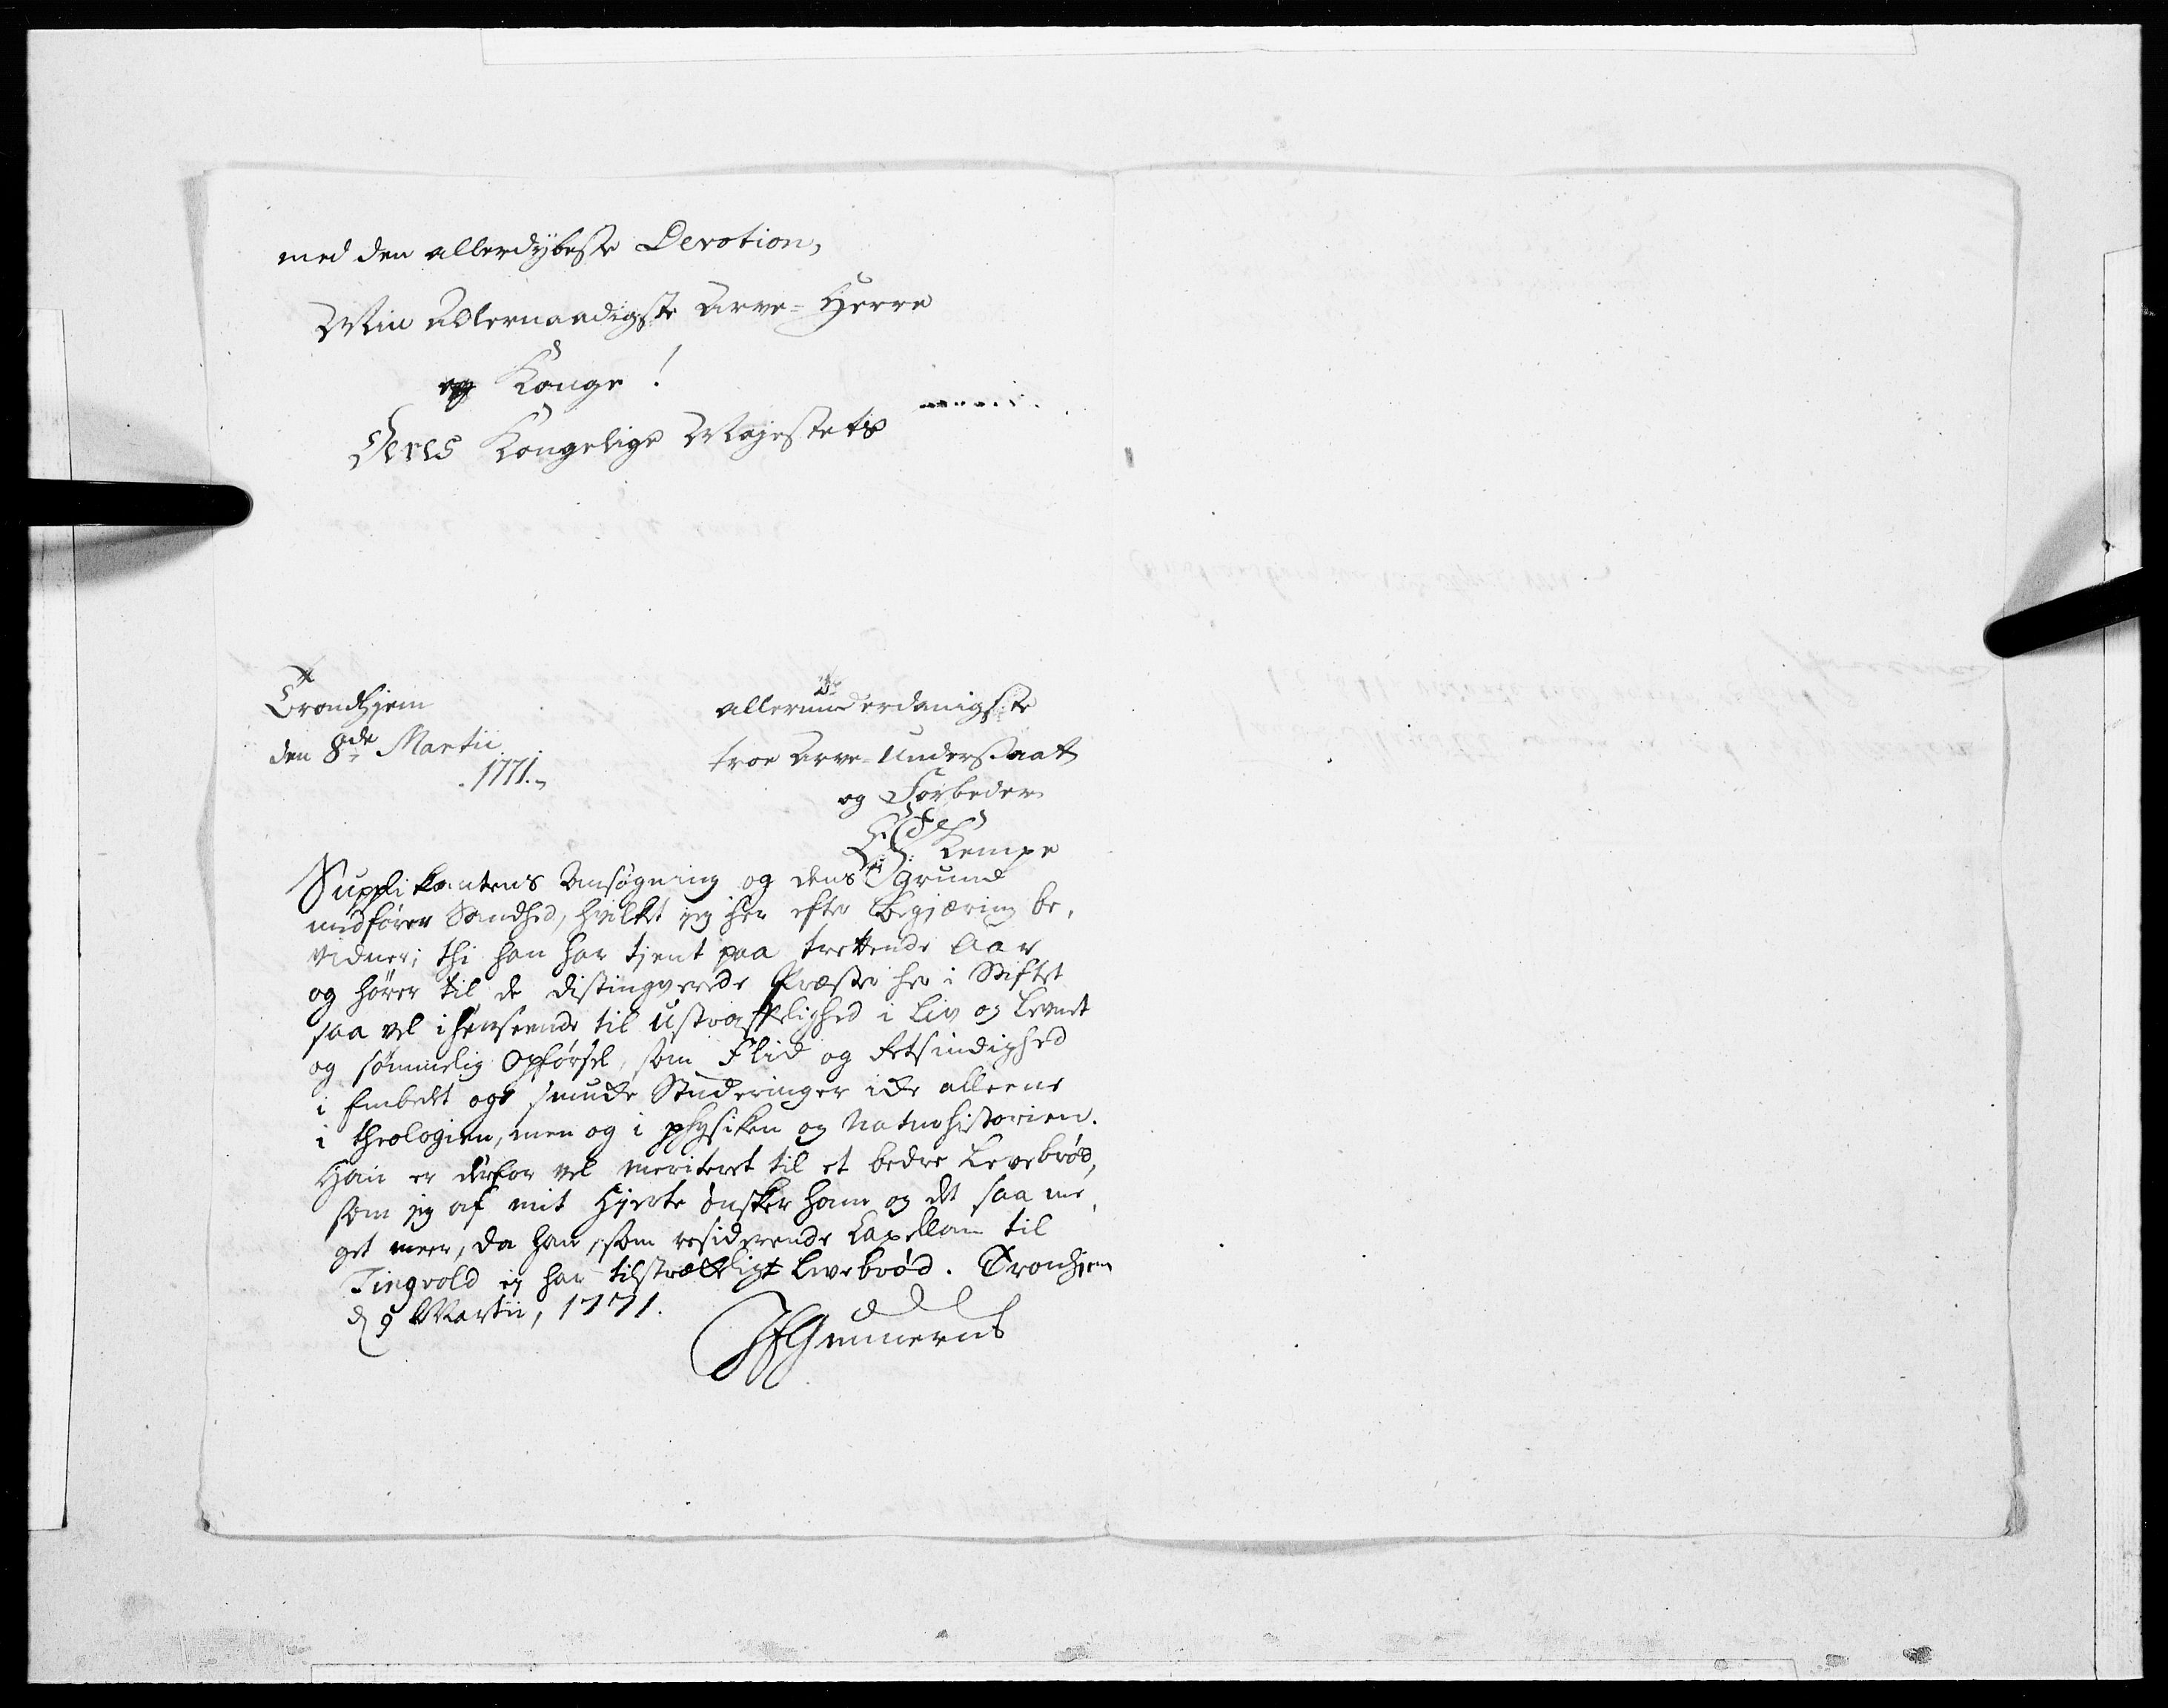 med den allerdybeste Devotion,
Min Allernaadigste Arve-Herre
og Konge!
Deres Kongelige Majestets
Trondhjem
den 8de Martii
1771.
allerunderdanigste
troe Arve-Understaat
og Forbeder
Kempe
Supplikantens Ansøgning og dens Grund
medfører Sandhed, hvilket jeg her efter Begjæring be-
vidner; thi han har tjent paa trettende Aar
og hører til de distingverede Præster her i Stiftet
saa vel i henseende til Ustraffelighed i Liv og Levnet
og sømmelig Opførsel, som Flid og Retsindighed
i Embedet og smukke Studeringer ikke alleene
i theologien, men og i physiken og Naturhistorien.
Han er derfor vel meriteret til et bedre Levebrød,
som jeg af mit Hjerte ønsker ham og det saa me-
get meer, da han, som residerende Capellan til
Tingvold ej har tilstrækkeligt Levebrød. Tronhjem
d 9 Martii, 1771.
JEGunnerus